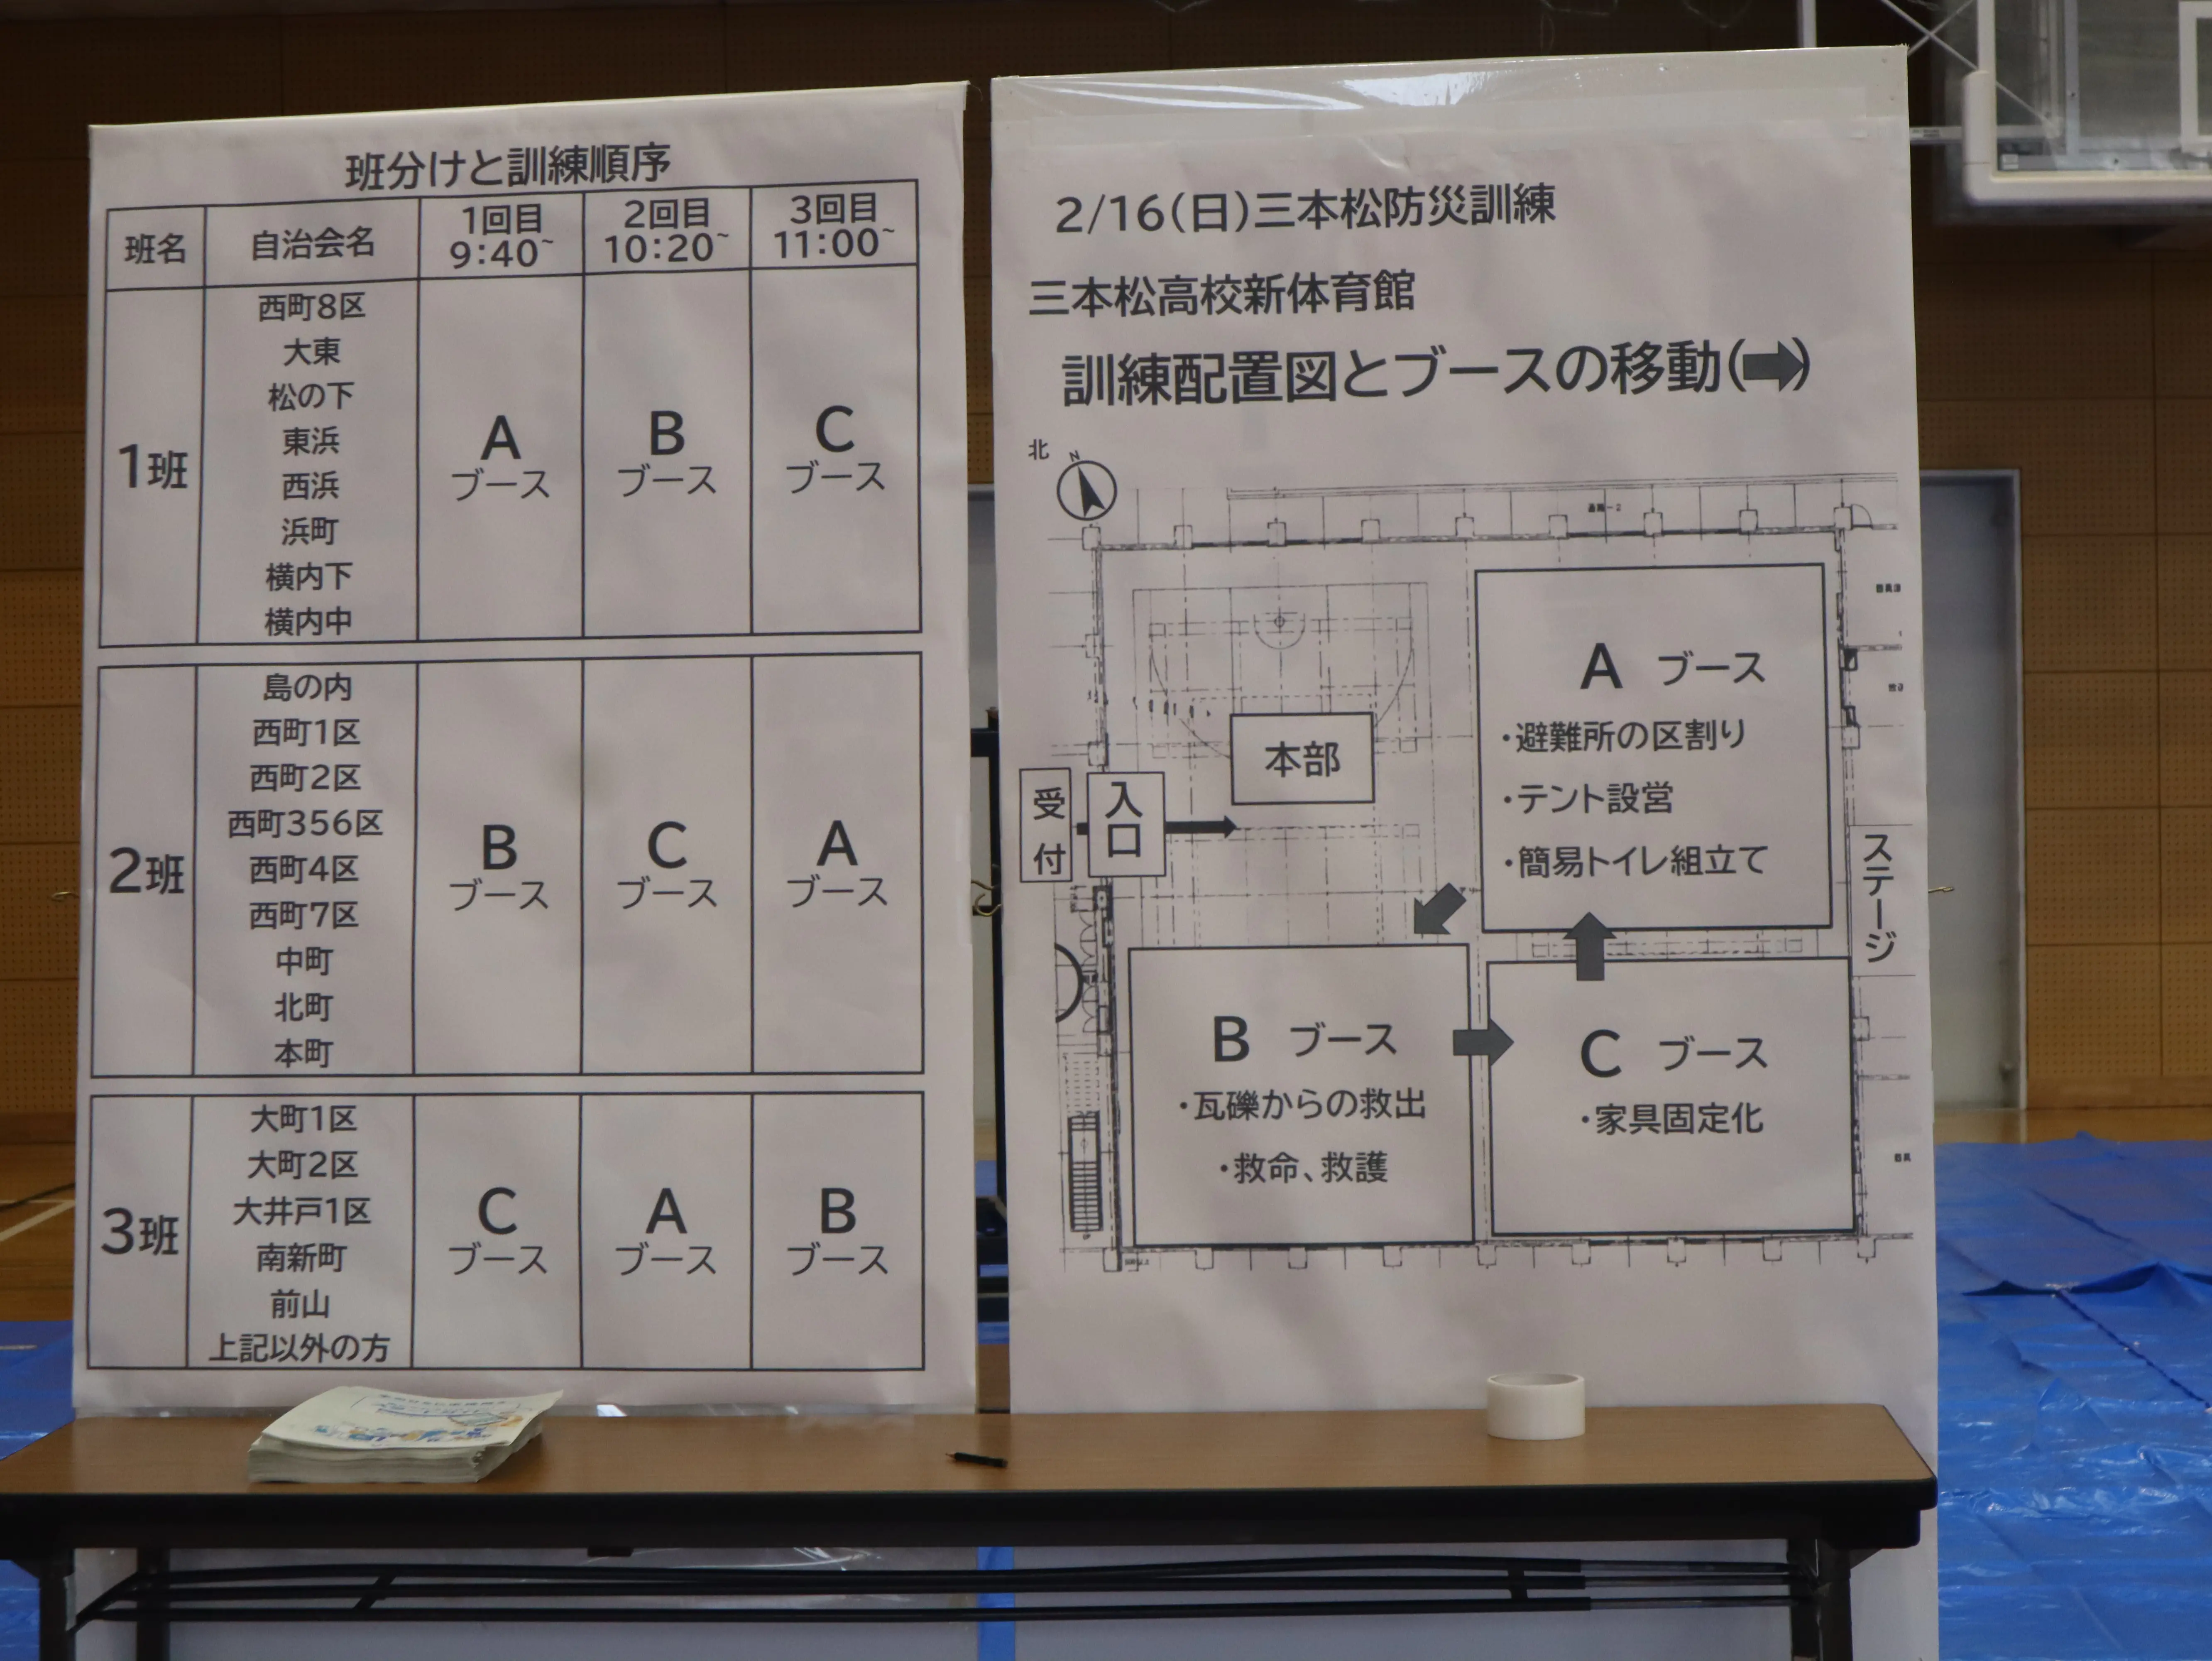 班分けと訓練順序
班名 自治会名 1回目 9:40~ 2回目 10:20~ 3回目 11:00~
1班
西町8区
大東
松の下
東浜
西浜
浜町
横内下
横内中
A ブース
B ブース
C ブース
2班
島の内
西町1区
西町2区
西町356区
西町4区
西町7区
中町
北町
本町
B ブース
C ブース
A ブース
3班
大町1区
大町2区
大井戸1区
南新町
前山
上記以外の方
C ブース
A ブース
B ブース
2/16(日)三本松防災訓練
三本松高校新体育館
訓練配置図とブースの移動(➡)
北
N
A ブース
・避難所の区割り
・テント設営
・簡易トイレ組立て
本部
受付
入口
ステージ
B ブース
・瓦礫からの救出
・救命、救護
C ブース
・家具固定化